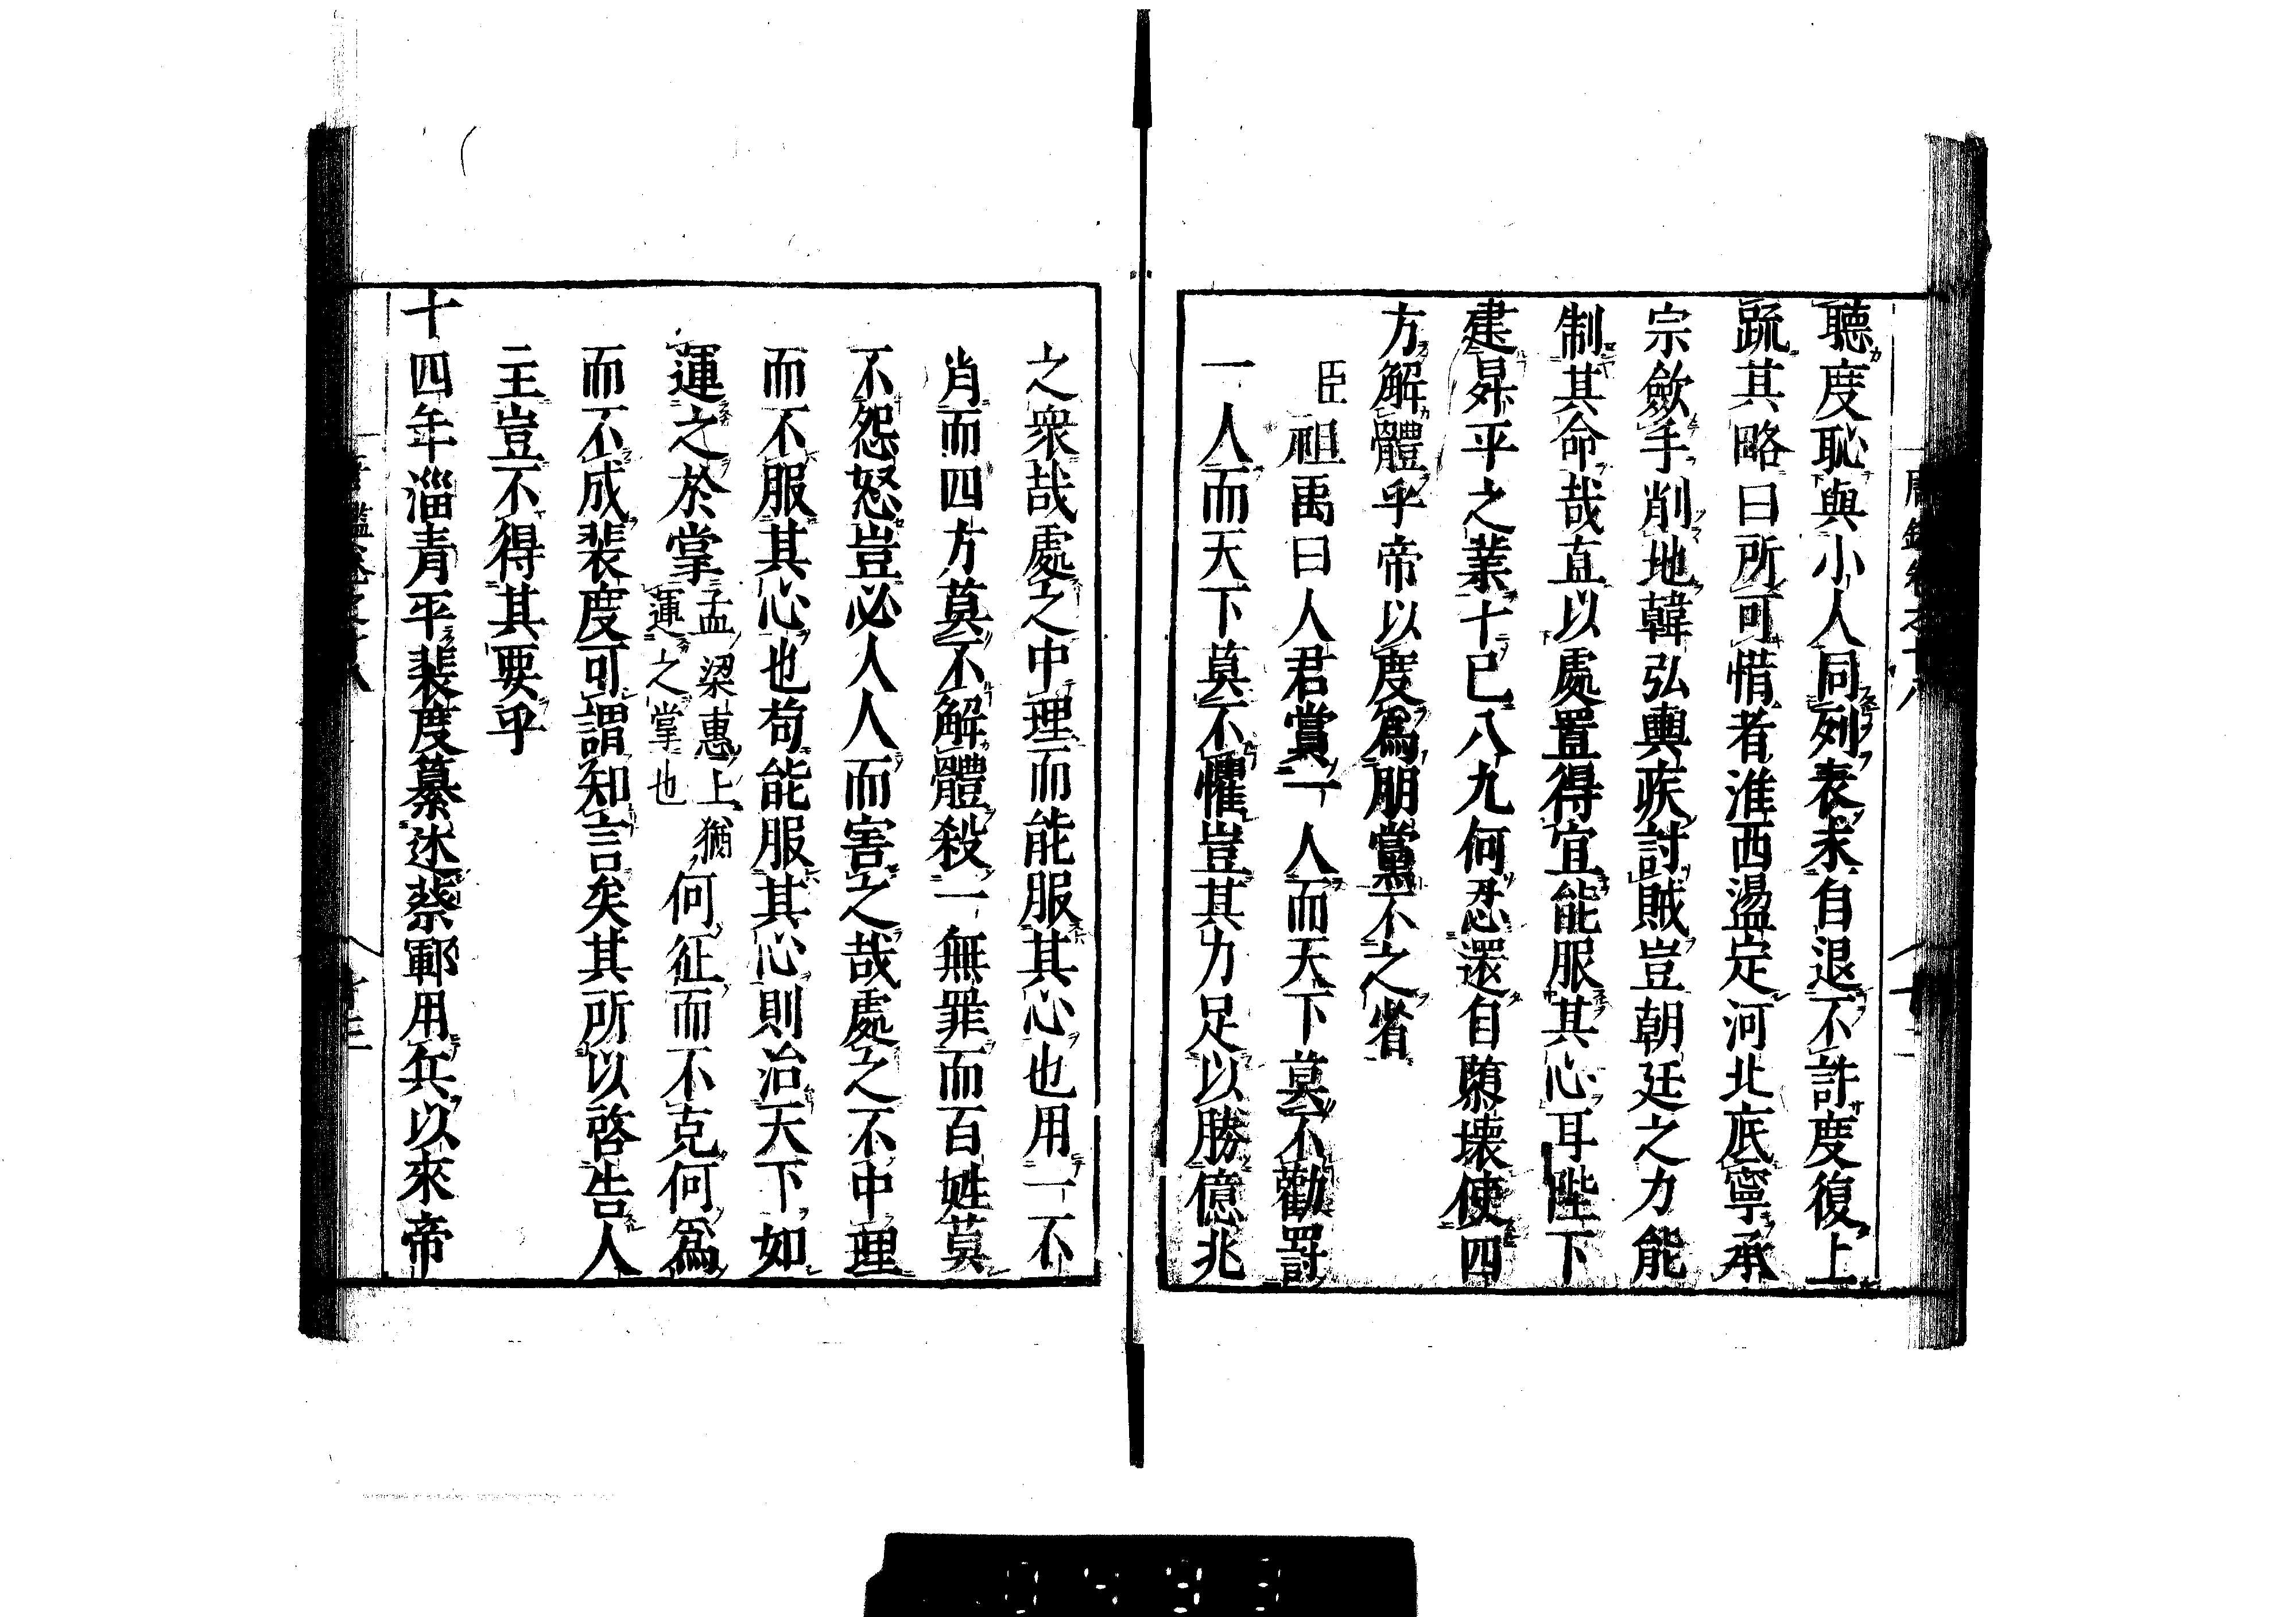 聽度恥與小人同列表求自退不許度復上
䟽其略曰所可惜者淮西盪定河北底寧承
宗歛手削地韓弘輿疾討賊豈朝廷之力能
制其命哉直以處置得宜能服其心耳陛下
建昇平之業十已八九何忍還自隳壞使四
方解體乎帝以度爲朋黨不之省
臣祖禹曰人君賞一人而天下莫不勸罰
一人而天下莫不懼豈其力足以勝億兆
之衆哉處之中理而能服其心也用一不
肖而四方莫不解體殺一無罪而百姓莫
不怨怒豈必人人而害之哉處之不中理
而不服其心也苟能服其心則治天下如
運之於掌孟梁惠上猶運之掌也何征而不克何爲
而不成裴度可謂知言矣其所以啓告人
主豈不得其要乎
十四年淄青平裴度纂述蔡鄆用兵以來帝